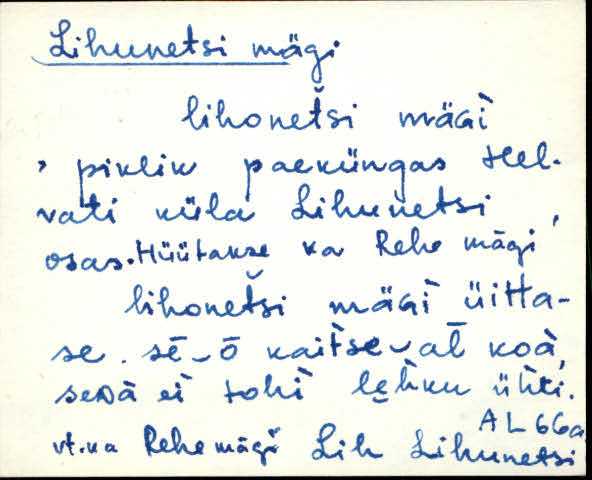 Lihunetsi mägi
lihonet́ši mäGì
, piklik paeküngas Hel-
vati küla Lihunetsi
osas. Hüütakse ka Rehe mägi'
lihonet́ši mäGì üitta-
se. sē‿ō kaitse‿al̄ koà,
seDà ei tohì lɛhku ühti.
AL 66a
vt. ka Rehe mägi Lih Lihunetsi